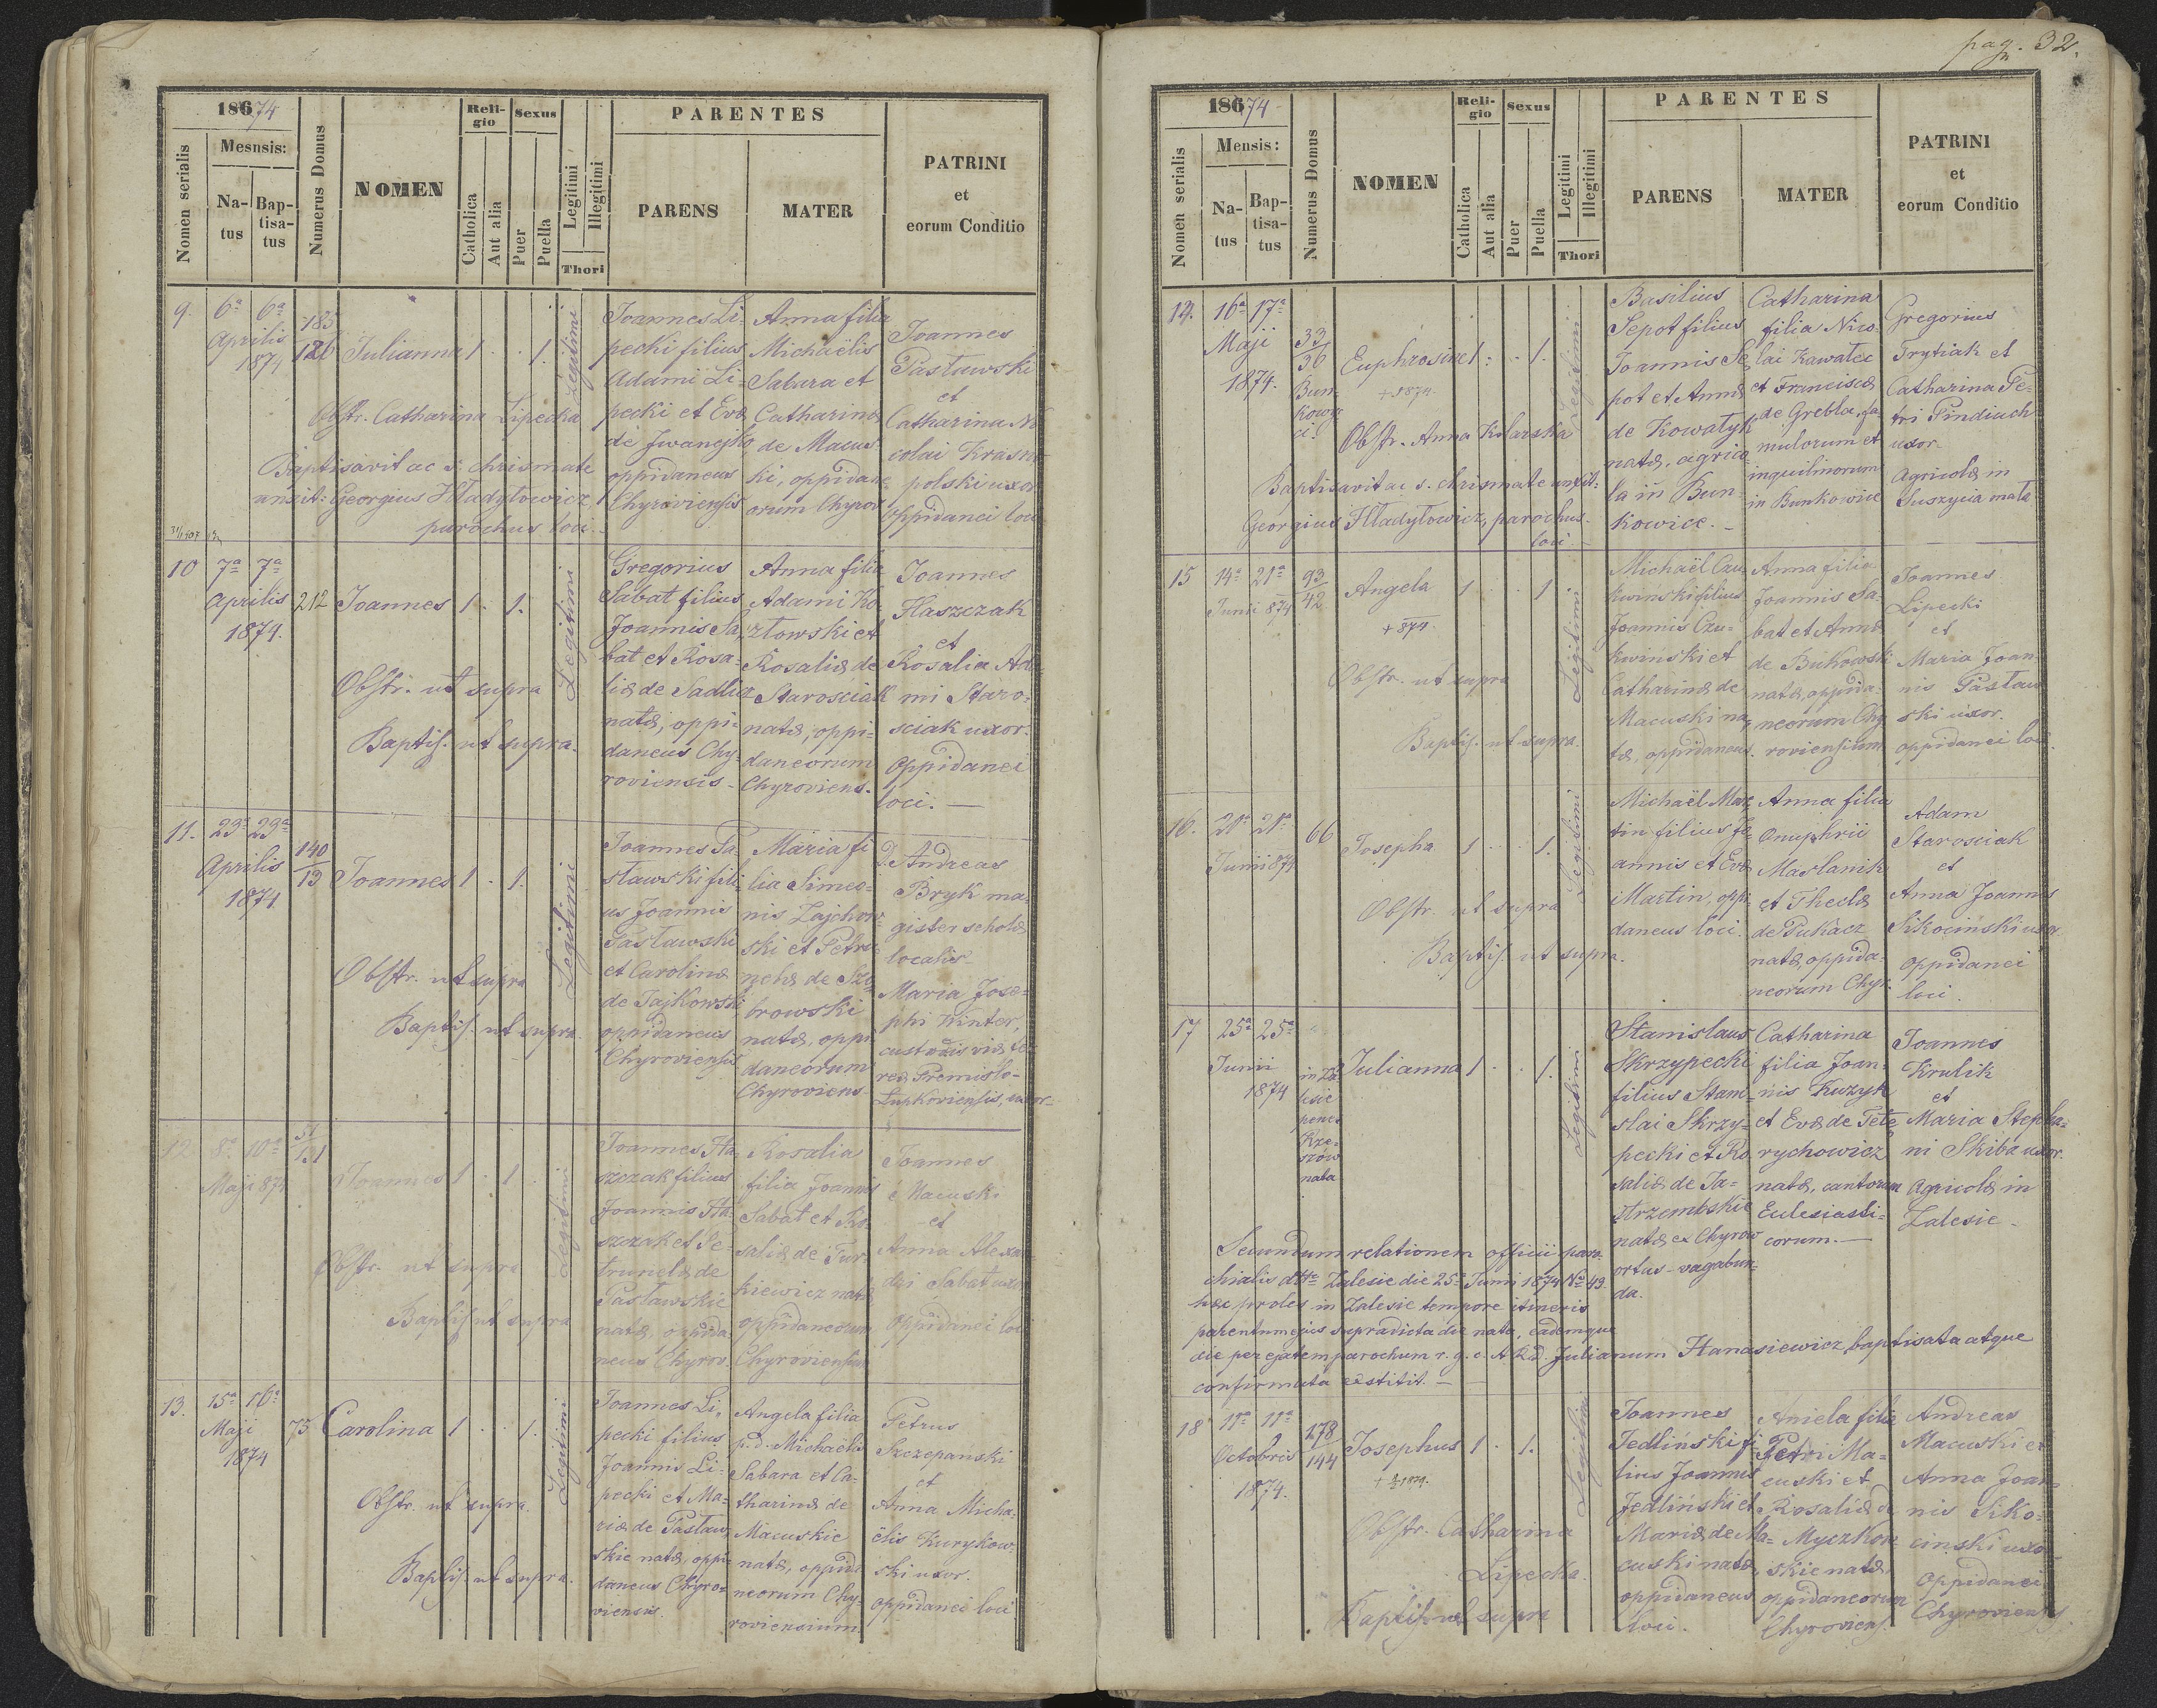 pag. 32.
186 74
Mesnsis:
Nomen serialis
Na-
tus
Bap-
tisa-
tus
Numerus Domus
NOMEN
Reli-
gio
Catholica
Aut alia
Sexus
Puer
Puella
Legitimi
Illegitimi
Thori
PARENTES
PARENS
MATER
PATRINI
et
eorum Conditio
9.
6ª 6ª
Aprilis
1874
185
126
Julianna 1 . . 1.
Legitimi
Obstr. Catharina Lipecka
Baptisavit ac s. chrismate
unxit: Georgius Hładyłowicz
parochus loci.
Joannes Li-
pecki filius
Adami Li-
pecki et Evæ
de Iwanejko
oppidaneus
Chyroviensis
Anna filia
Michaëlis
Sabara et
Catharinæ
de Macus
ki, oppidane
orum Chyrov
Joannes
Pastawski
et
Catharina Ni
colai Krasno
polski uxor
oppidanei loci
10
7ª 7ª
Aprilis
1874.
212
Joannes 1 . 1.
Legitimi
Obstr. ut supra
Baptis. ut supra.
Gregorius
Sabat filius
Joannis Sa-
bat et Rosa-
liæ de Sadlik
natæ, oppi-
daneus Chy-
roviensis.
Anna filia
Adami Ko
złowski et
Rosaliæ de
Starosciak
natæ, oppi-
daneorum
Chyroviens.
Joannes
Haszczak
et
Rosalia Ada
mi Staro-
sciak uxor.
Oppidanei
loci. —
11.
29ª 29ª
Aprilis
1874.
140
13
Joannes 1 . 1.
Legitimi
Obstr. ut supra
Baptis. ut supra.
Joannes Pa
stawski fili
us Joannis
Pastawski
et Carolinæ
de Pajkowski
oppidaneus
Chyroviensis
Maria fi
lia Simeo-
nis Zajchow
ski et Petro
nelæ de Sze
browski
natæ, oppi
daneorum
Chyroviens
D. Andreas
Bryk ma-
gister scholæ
localis
Maria Jose-
phi Winter,
custodis viæ fer
reæ Premislo-
Łupkoviensis, uxor
12
8ª 10ª
Maji 874
51
131
Joannes 1 . 1
Legitimi
Obstr. ut supra
Baptis. ut supra
Joannes Ha
szczak filius
Joannis Ha-
szczak et Pe-
trunelæ de
Pastawskie
natæ, oppida
neus Chyrov.
Rosalia
filia Joannis
Sabat et Ro-
saliæ de Tur-
kiewicz natæ
oppidaneorum
Chyroviensium
Joannes
Macuski
et
Anna Alexan
dri Sabat uxor
oppidanei loci
13.
15ª 16ª
Maji
1874
75
Carolina 1 . . 1.
Legitimi
Obstr. ut supra.
Baptis. ut supra.
Joannes Li-
pecki filius
Joannis Li-
pecki et Ma-
riæ de Pastaw
skie natæ, oppi-
daneus Chyro-
viensis.
Angela filia
p.d. Michaëlis
Sabara et Ca-
tharinæ de
Macuskie
natæ, oppida
neorum Chy-
roviensium.
Petrus
Szczepański
et
Anna Micha-
ëlis Kurykow-
ski uxor.
oppidanei loci
186 74
Mensis:
Nomen serialis
Na-
tus
Bap-
tisa-
tus
Numerus Domus
NOMEN
Reli-
gio
Catholica
Aut alia
Sexus
Puer
Puella
Legitimi
Illegitimi
Thori
PARENTES
PARENS
MATER
PATRINI
et
eorum Conditio
14.
16ª 17ª
Maji
1874.
33
36
Bun
kowi
ci.
Euphrosine 1 . . 1.
+ 1874.
Legitimi
Obstr. Anna Kolarska
Baptisavit ac s. chrismate unxit:
Georgius Hładyłowicz, parochus
loci.
Basilius
Sepot filius
Joannis Se
pot et Annæ
de Kowalyk
natæ, agrico
la in Bun-
kowice. —
Catharina
filia Nico-
lai Kawalec
et Franciscæ
de Grebla, fa-
mulorum et
inquilinorum
in Bunkowice
Gregorius
Trytiak et
Catharina Pe-
tri Pindiuch
uxor.
Agricolæ in
Suszyca mała
15
14ª 21ª
Junii 874
93
42
Angela 1 . . 1 .
+ 874.
Legitimi
Obstr. ut supra
Baptis. ut supra.
Michaël Czu
kwinski filius
Joannis Czu-
kwiński et
Catharinæ de
Macuski na-
tæ, oppidaneus.
Anna filia
Joannis Sa-
bat et Annæ
de Bukowski
natæ, oppida-
neorum Chy-
roviensium
Joannes
Lipecki
et
Maria Joan-
nis Pastaw
ski uxor.
oppidanei loci.
16.
20ª 21ª
Junii 874
66
Josepha 1 . . 1.
Legitimi
Obstr. ut supra
Baptis. ut supra.
Michaël Mar
tin filius Jo
annis et Evæ
Martin, oppi
daneus loci.
Anna filia
Onuphrii
Maslanik
et Theclæ
de Pukacz
natæ, oppida-
neorum Chyr.
Adam
Starosciak
et
Anna Joannis
Sikociński uxor
oppidanei
loci.
17
25ª 25ª
Junii
1874
in Za
lesie
penes
Rze-
szow
nata
Julianna 1 . . 1.
Legitimi
Stanislaus
Skrzypecki
filius Stani-
slai Skrzy-
pecki et Ro
saliæ de Ja-
strzembskie
natæ ex Chyrow
ortus - vagabun-
da.
Catharina
filia Joan-
nis Kuzyk
et Evæ de Pete
rychowicz
natæ, cantorum
Ecclesiasti-
corum. —
Joannes
Krulik
et
Maria Stepha-
ni Skiba uxor.
Agricolæ in
Zalesie —
Secundum relationem officii paro-
chialis dtto Zalesie die 25ª Junii 1874 № 49.
hæc proles in Zalesie tempore itineris
parentum ejus supradicta die nata, eademque
die per ejatem parochum r. g. c. A R d. Julianum Hanasiewicz baptisata atque
confirmata exstitit. —
18
11ª 11ª
Octobris
1874.
278
144
Josephus 1 . 1.
Legitimi
Obstr. Catharina
Lipecka.
Baptis. ut supra
Joannes
Jedliński fi-
lius Joannis
Jedliński et
Mariæ de Ma-
cuski natæ,
oppidaneus
loci.
Aniela filia
Petri Ma-
cuski et
Rosaliæ de
Myczkow
skie natæ
oppidaneorum
Chyroviens.
Andreas
Macuski et
Anna Joan-
nis Siko-
cinski uxor
Oppidanei
Chyroviens